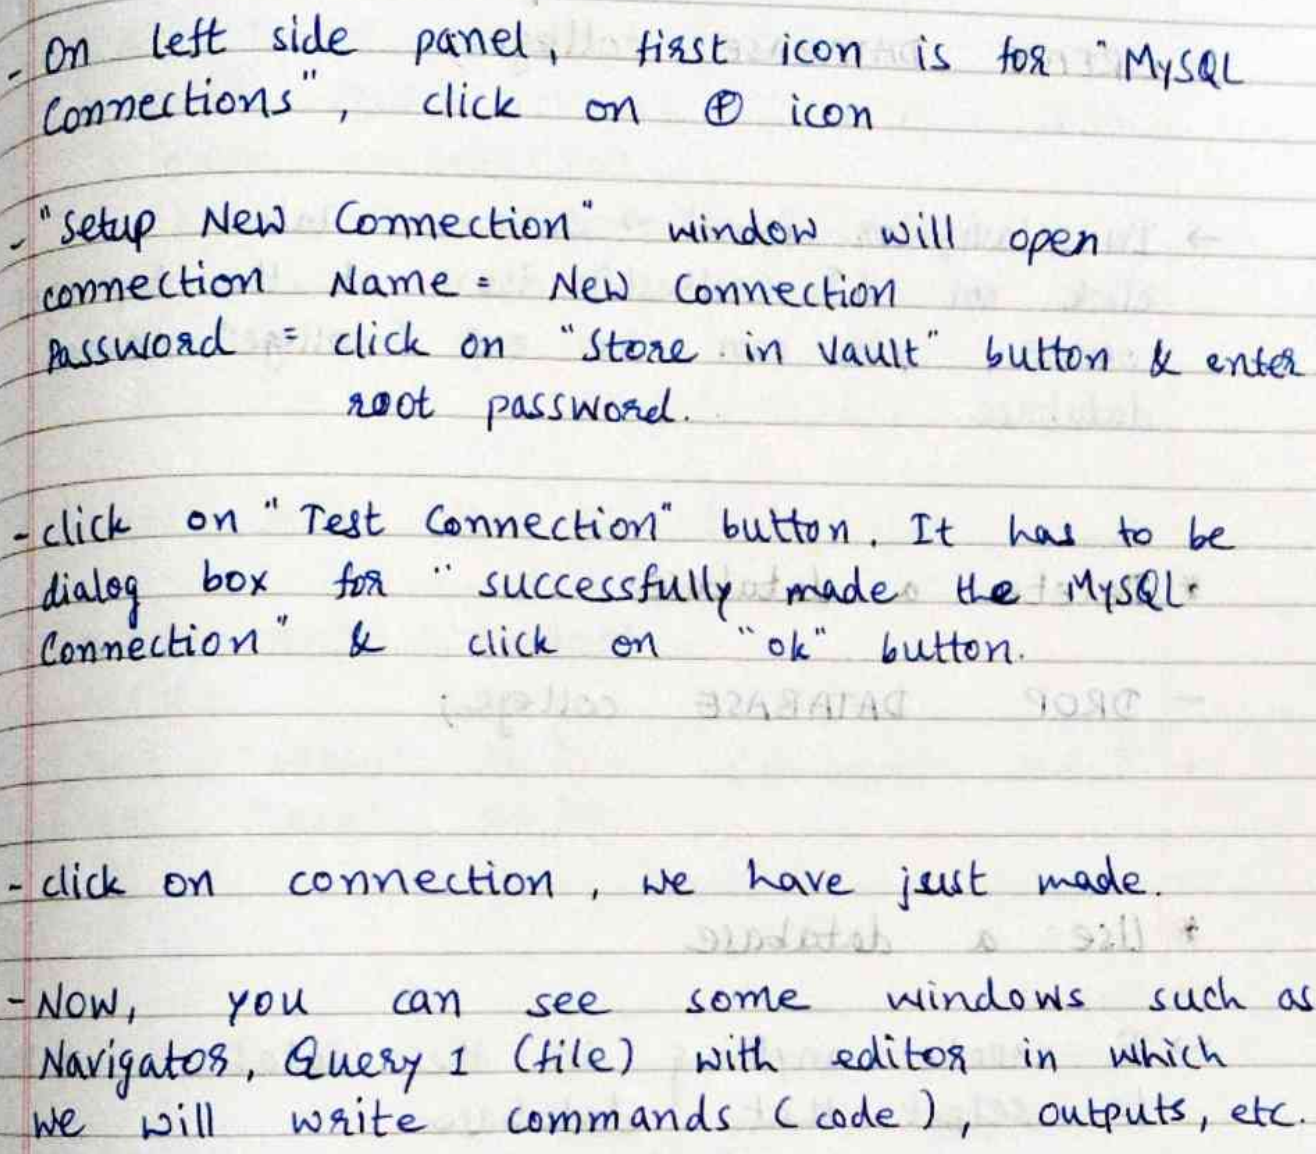 - On left side panel, first icon is for "MySQL
Connections", click on ⊕ icon
- "Setup New Connection" window will open
connection Name = New Connection
Password = click on "Store in Vault" button & enter
root password.
- click on "Test Connection" button. It has to be
dialog box for "successfully made the MySQL
Connection" & click on "ok" button.
- click on connection, we have just made.
- Now, you can see some windows such as
Navigator, Query 1 (file) with editor in which
we will write commands (code), outputs, etc.